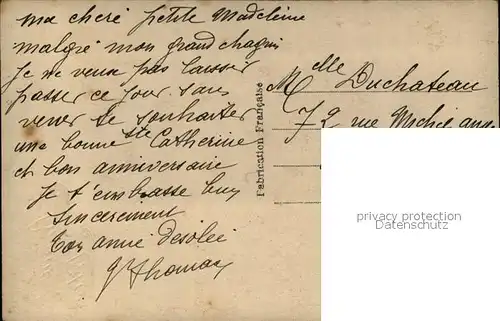 ma cheré petite Madeleine
malgré mon grand chagrin
je ne veux pas laisser
passer ce jour sans
venir te souhaiter
une bonne Ste Catherine
et bon anniversaire
je t'embrasse bien
sincerement
ton amie désolée
Thomas
Melle Duchateau
72 rue Michel ange
Fabrication Française
privacy protection
datenschutz